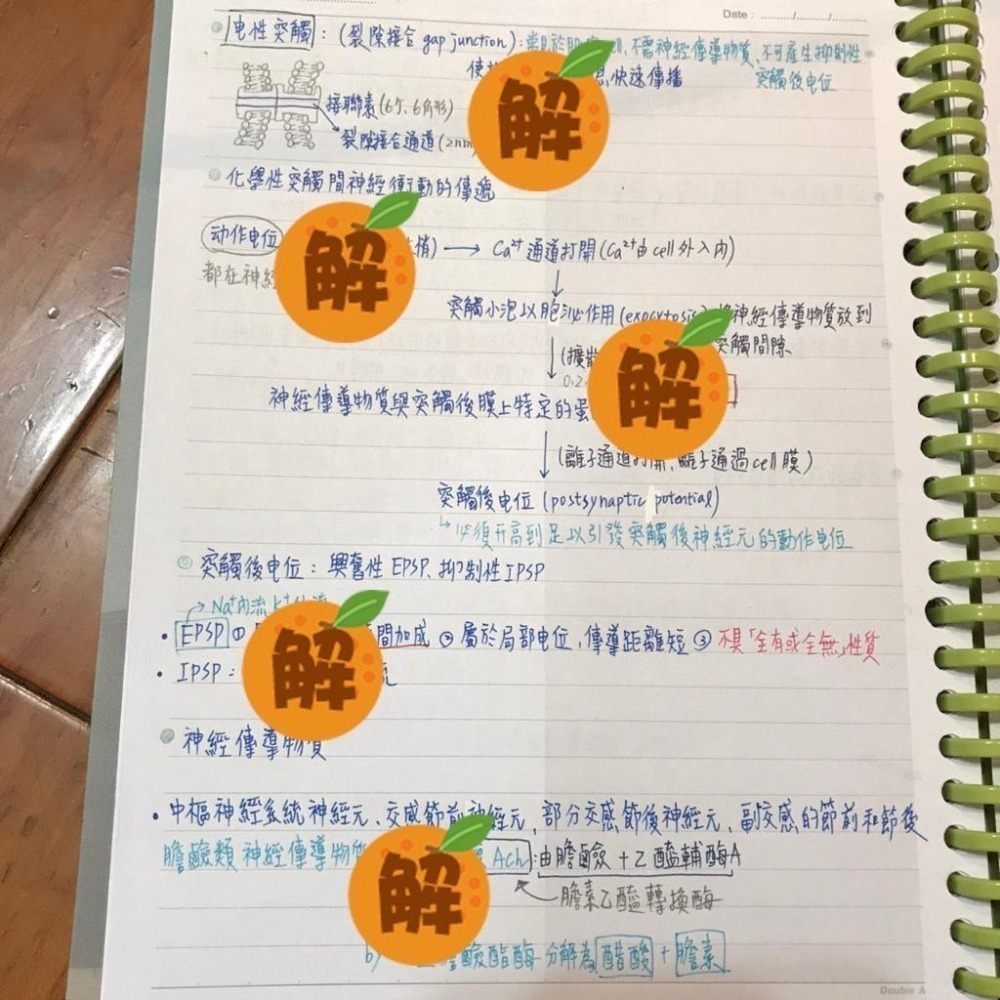 Date : ....../....../......
电性突觸 : (裂隙接合 gap junction) : 常見於 cell, 不需神經傳導物質、不可產生抑制性
使 快速傳播 突觸後电位
接聯素 (6个、6角形)
裂隙接合通道 (2nm
化學性突觸間神經衝動的傳遞
动作电位 梢) → Ca²⁺ 通道打開 (Ca²⁺由 cell 外入內)
都在神經
突觸小泡以胞泌作用 (exocytosis) 將神經傳導物質放到
(擴散 突觸間隙
0.2
神經傳導物質與突觸後膜上特定的蛋
(離子通道打開, 離子通過 cell 膜)
突觸後电位 (postsynaptic potential)
↳必須升高到足以引發突觸後神經元的動作电位
突觸後电位 : 興奮性 EPSP、抑制性 IPSP
→ Na⁺內流 K⁺
• EPSP ① 間加成 ② 屬於局部电位, 傳導距離短 ③ 不具「全有或全無」性質
• IPSP : 流
神經傳導物質
• 中樞神經系統神經元、交感節前神經元、部分交感節後神經元、副交感的節前和節後
膽鹼類神經傳導物質 Ach : 由膽鹼 + 乙醯輔酶A
膽素乙醯轉換酶
b) 膽鹼酯酶 分解為 醋酸 + 膽素
解
解
解
解
解
Double A